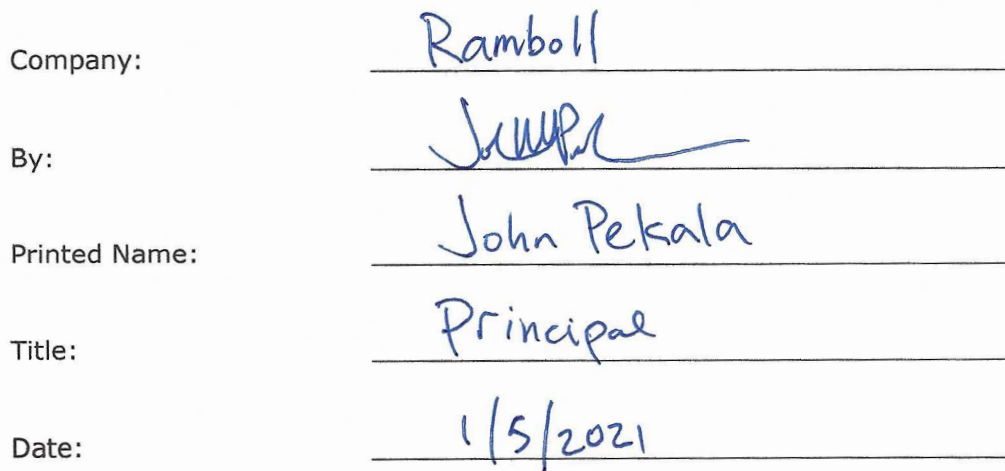 Company: Ramboll
By:
Printed Name: John Pekala
Title: Principal
Date: 1/5/2021